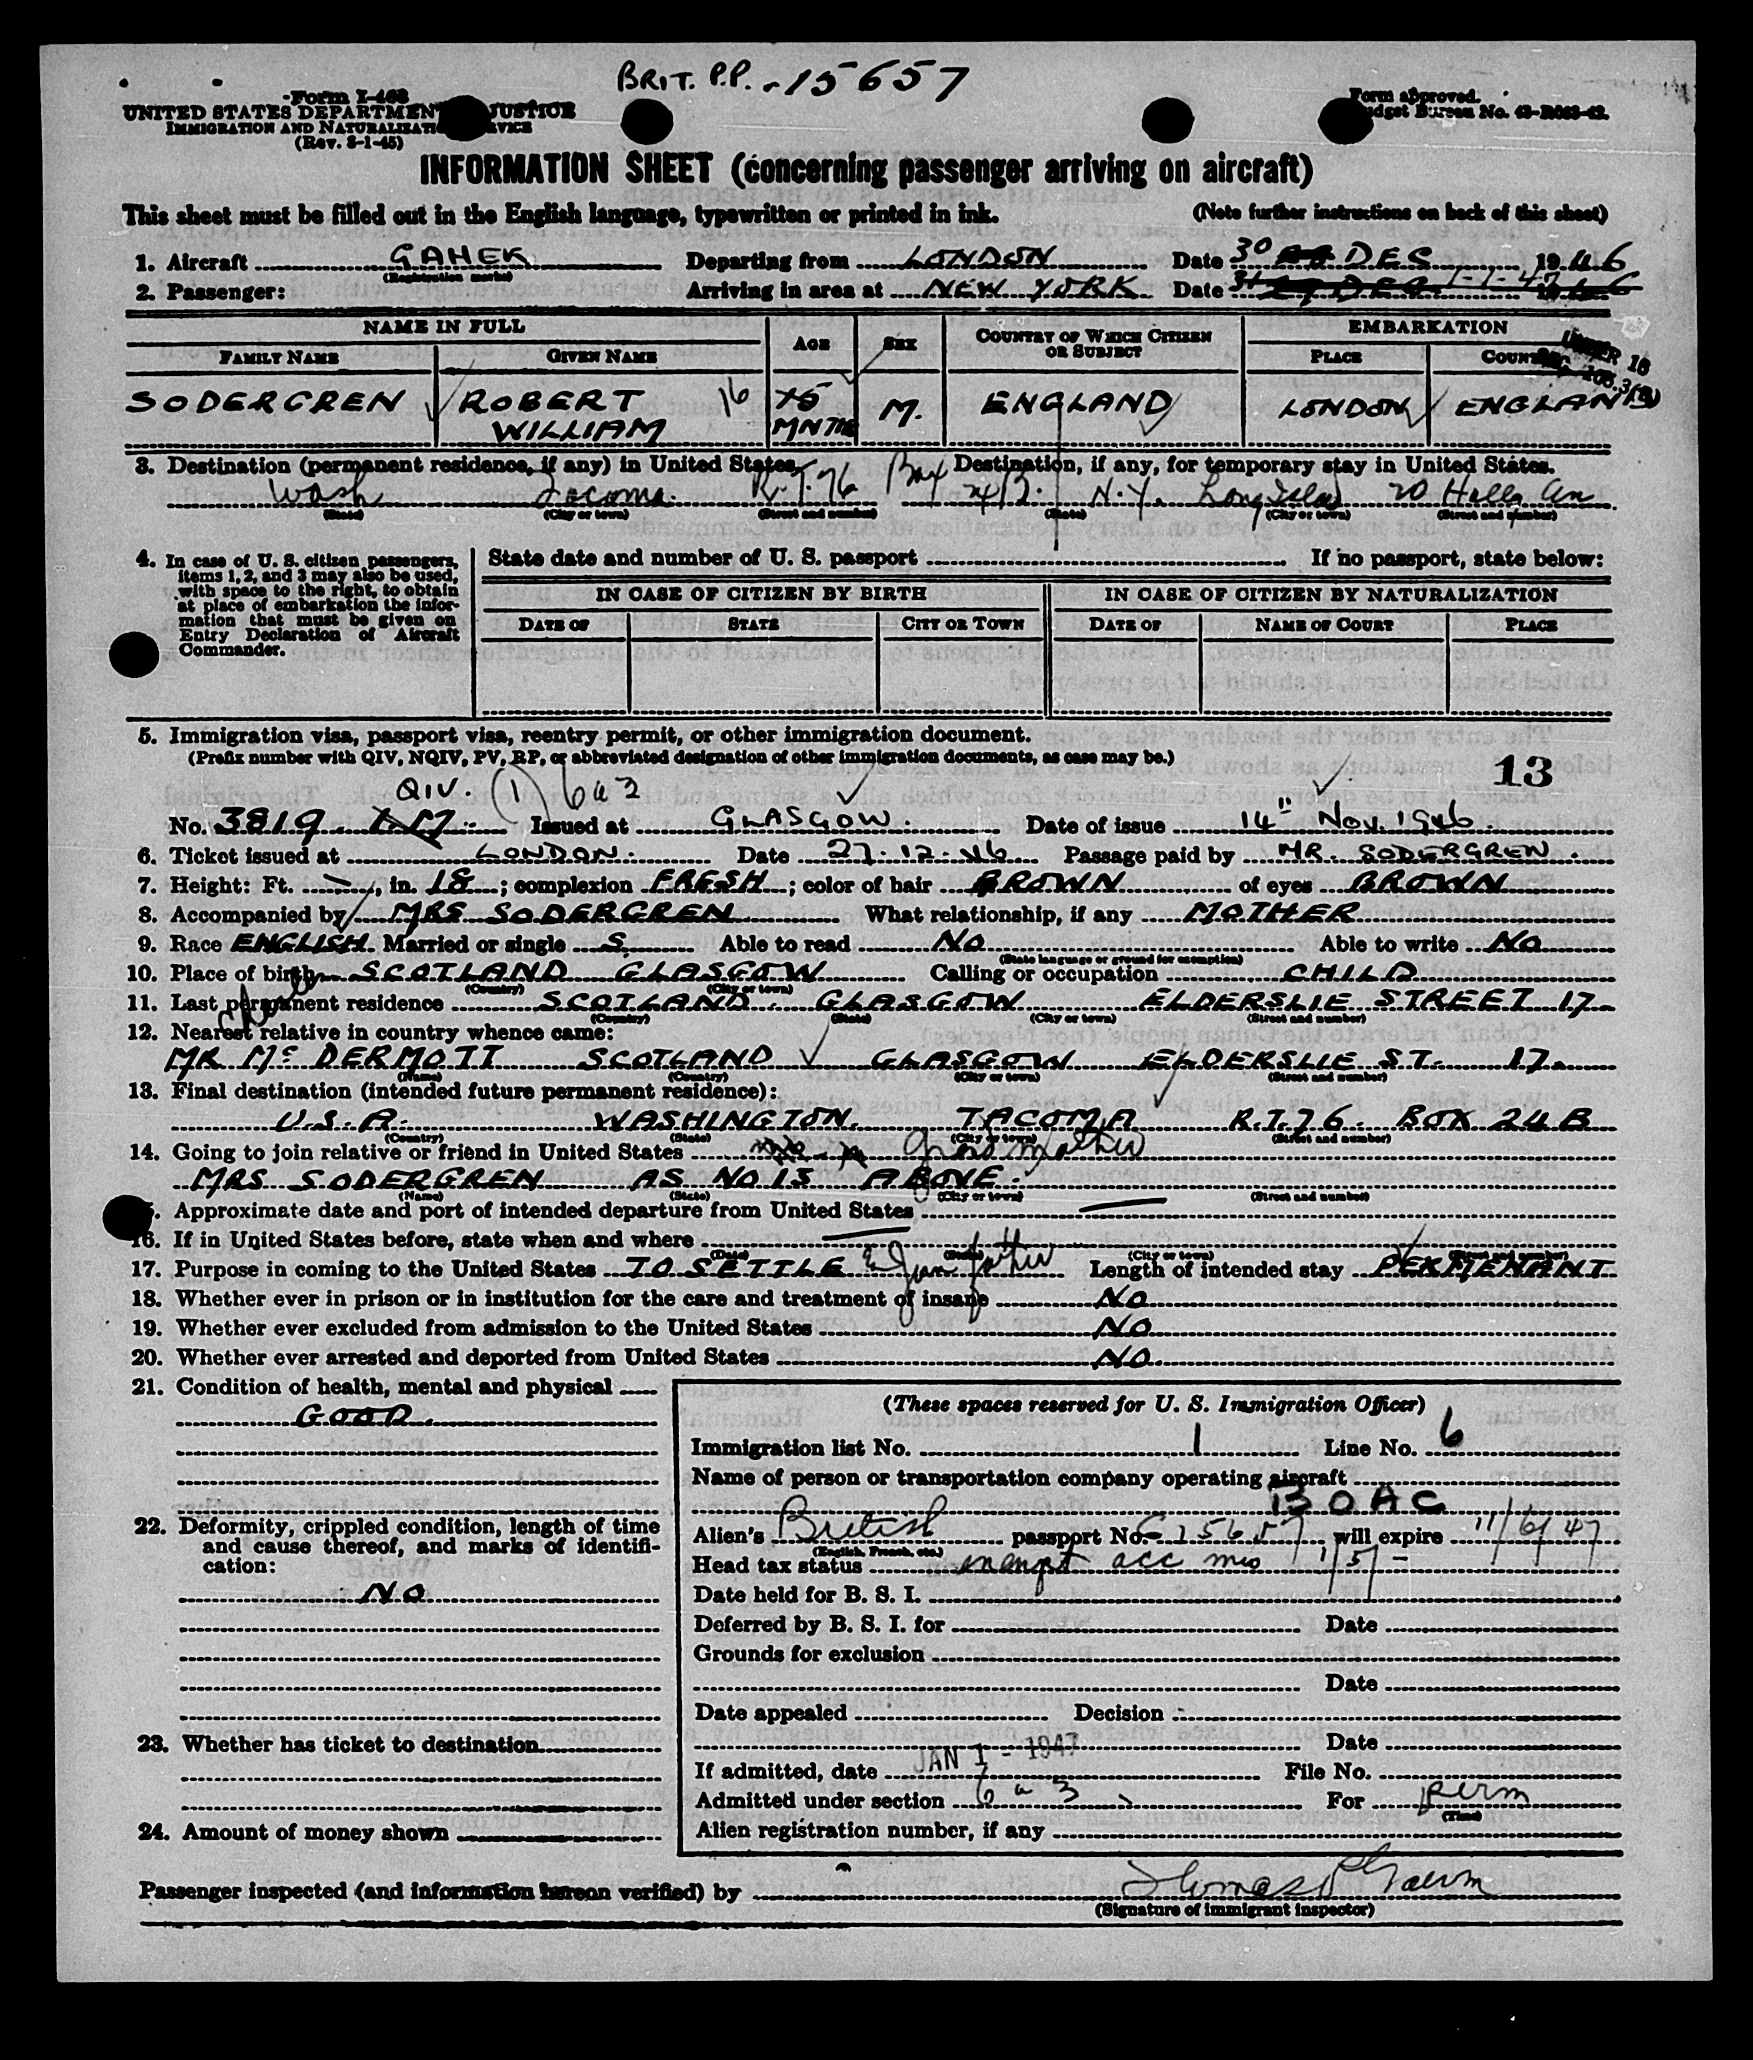 BRIT. P.P. - 15657
Form I-468
UNITED STATES DEPARTMENT JUSTICE
IMMIGRATION AND NATURALIZATION SERVICE
(Rev. 8-1-45)
Form approved.
Budget Bureau No. 43-R063-42.
INFORMATION SHEET (concerning passenger arriving on aircraft)
This sheet must be filled out in the English language, typewritten or printed in ink. (Note further instructions on back of this sheet)
1. Aircraft GAHEK Departing from LONDON Date 30 DEC 1946
(Registration marks)
2. Passenger: Arriving in area at NEW YORK Date 1-1-47
NAME IN FULL AGE SEX COUNTRY OF WHICH CITIZEN OR SUBJECT EMBARKATION
FAMILY NAME GIVEN NAME PLACE COUNTRY
UNDER 16
SODERGREN ROBERT WILLIAM 16 15 MNTHS M. ENGLAND LONDON ENGLAND
3. Destination (permanent residence, if any) in United States. Destination, if any, for temporary stay in United States.
Wash Tacoma. R.T. 76 Box N.Y. Long Island 20 Hills
(State) (City or town) (Street and number) (State) (City or town) (Street and number)
4. In case of U. S. citizen passengers, items 1, 2, and 3 may also be used, with space to the right, to obtain at place of embarkation the information that must be given on Entry Declaration of Aircraft Commander.
State date and number of U. S. passport If no passport, state below:
IN CASE OF CITIZEN BY BIRTH IN CASE OF CITIZEN BY NATURALIZATION
DATE OF STATE CITY OR TOWN DATE OF NAME OF COURT PLACE
5. Immigration visa, passport visa, reentry permit, or other immigration document.
(Prefix number with QIV, NQIV, PV, RP, or abbreviated designation of other immigration documents, as case may be.)
13
QIV. (1) 6a3
No. 3819 Issued at GLASGOW. Date of issue 14" Nov. 1946.
6. Ticket issued at LONDON. Date 27.12.46 Passage paid by MR. SODERGREN.
7. Height: Ft. –, in. 18; complexion FRESH; color of hair BROWN of eyes BROWN
8. Accompanied by MRS SODERGREN What relationship, if any MOTHER
9. Race ENGLISH. Married or single S. Able to read NO Able to write NO
(State language or ground for exemption)
10. Place of birth SCOTLAND GLASGOW Calling or occupation CHILD
(Country) (City or town)
11. Last permanent residence SCOTLAND. GLASGOW ELDERSLIE STREET 17
(Country) (State) (City or town) (Street and number)
12. Nearest relative in country whence came:
MR Mc DERMOTT SCOTLAND GLASGOW ELDERSLIE ST. 17.
(Name) (Country) (City or town) (Street and number)
13. Final destination (intended future permanent residence):
U.S.A. WASHINGTON. TACOMA R.T. 76. BOX 24B
(Country) (State) (City or town) (Street and number)
14. Going to join relative or friend in United States Grandmother
MRS SODERGREN AS NO 13 ABOVE.
(Name) (State) (City or town) (Street and number)
15. Approximate date and port of intended departure from United States —
16. If in United States before, state when and where —
(Date) (State) (City or town) (Street and number)
17. Purpose in coming to the United States TO SETTLE & Join father Length of intended stay PERMENANT
18. Whether ever in prison or in institution for the care and treatment of insane NO
19. Whether ever excluded from admission to the United States NO
20. Whether ever arrested and deported from United States NO.
21. Condition of health, mental and physical
GOOD.
(These spaces reserved for U. S. Immigration Officer)
Immigration list No. 1 Line No. 6
Name of person or transportation company operating aircraft
BOAC
22. Deformity, crippled condition, length of time and cause thereof, and marks of identification:
NO
Alien's British passport No. C 15657 will expire 11/6/47
(English, French, etc.)
Head tax status exempt acc mes 1/5/-
Date held for B. S. I.
Deferred by B. S. I. for Date
Grounds for exclusion
Date
Date appealed Decision
23. Whether has ticket to destination
Date
If admitted, date JAN 1 - 1947 File No.
Admitted under section 6 a 3 For perm
(Time)
24. Amount of money shown
Alien registration number, if any
Passenger inspected (and information hereon verified) by Thomas
(Signature of immigrant inspector)